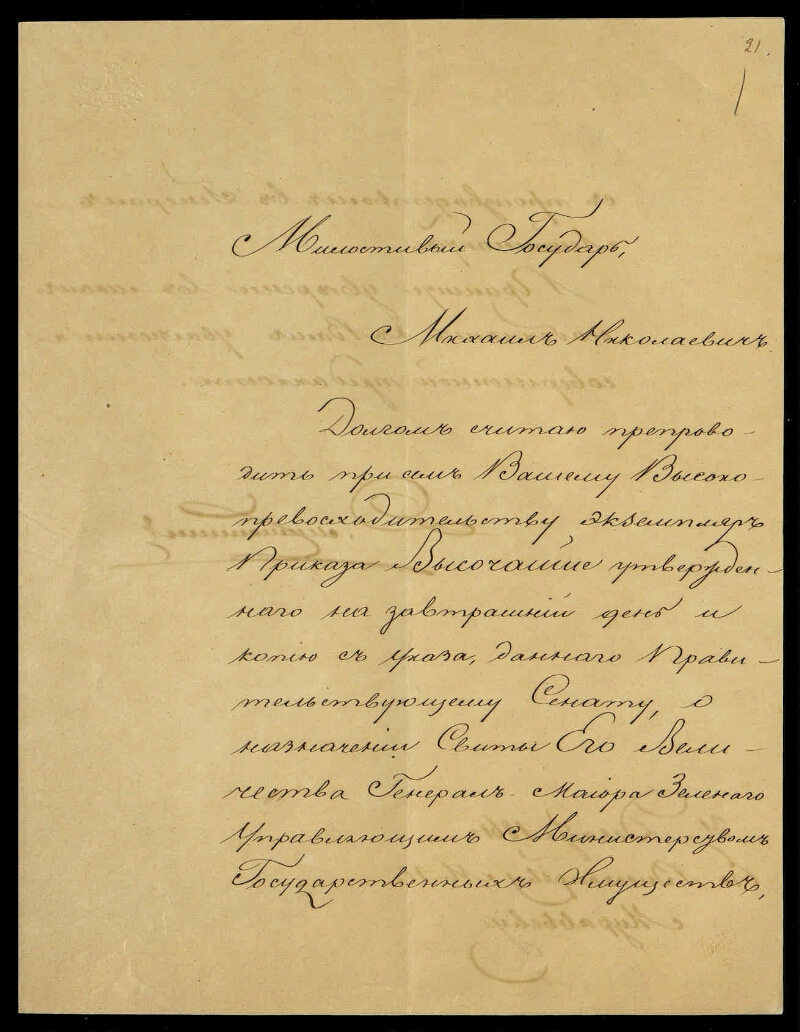 21.
Милостивый Государь,
Михаилъ Николаевичъ.
Долгомъ считаю препрово-
дить при семъ Вашему Высоко-
превосходительству экземпляръ
Приказа Высочайше утвержден-
наго на завтрашній день и
копію съ указа, даннаго Прави-
тельствующему Сенату, о
назначеніи Свиты Его Вели-
чества Генералъ-Маіора Зеленаго
Управляющимъ Министерствомъ
Государственныхъ Имуществъ,